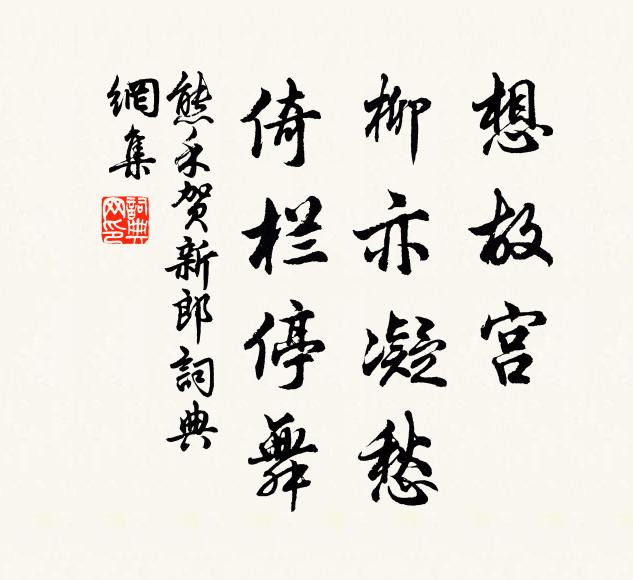 想故宫
柳亦凝愁
倚栏停舞
熊禾贺新郎詞典
網集
詞典网印